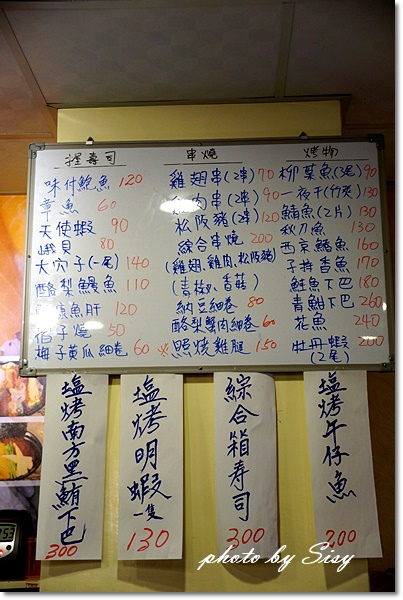 握壽司
味付鮑魚 120
章魚 60
天使蝦 90
峨貝 80
大穴子(一尾) 140
酪梨鰻魚 110
魚肝 120
50
梅子黃瓜細卷 60
串燒
雞翅串(2串) 70
雞肉串(2串) 90
松阪豬(2串) 120
綜合串燒 200
(雞翅、雞肉、松阪豬)
(青椒、香菇)
納豆細卷 80
酪梨蟹肉細卷 60
照燒雞腿 150
烤物
柳葉魚(3尾) 90
一夜干(竹夾) 130
鯖魚(2片) 130
秋刀魚 130
西京鱈魚 160
子持香魚 170
鮭魚下巴 180
青魽下巴 260
花魚 240
牡丹蝦 200
(2尾)
塩烤南方黑鮪下巴
300
塩烤明蝦一隻
130
綜合箱寿司
300
塩烤午仔魚
200
photo by Sisy